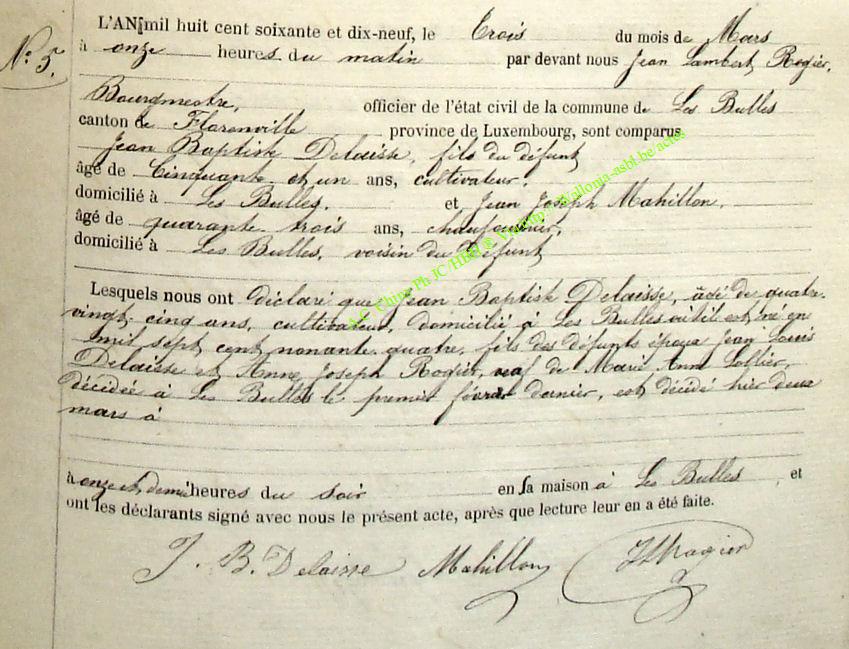 L'AN mil huit cent soixante et dix-neuf, le Trois du mois de Mars
N° 5.
à onze heures du matin par devant nous Jean Lambert Rogier,
Bourgmestre, officier de l'état civil de la commune de Les Bulles
canton de Florenville province de Luxembourg, sont comparus
Jean Baptiste Delaisse, fils du défunt
âgé de Cinquante et un ans, cultivateur,
domicilié à Les Bulles, et Jean Joseph Mahillon,
âgé de quarante trois ans, chaufournier,
domicilié à Les Bulles, voisin du Défunt
Lesquels nous ont déclaré que Jean Baptiste Delaisse, âgé de quatre-
vingt-cinq ans, cultivateur, domicilié à Les Bulles où il est né en
mil sept cent nonante-quatre, fils des défunts époux Jean Louis
Delaisse et Anne Joseph Rogier, veuf de Marie Anne
décédée à Les Bulles le premier février dernier, est décédé hier deux
mars à
à onze et demie heures du soir en sa maison à Les Bulles, et
ont les déclarants signé avec nous le présent acte, après que lecture leur en a été faite.
J. B. Delaisse Mahillon JLRogier